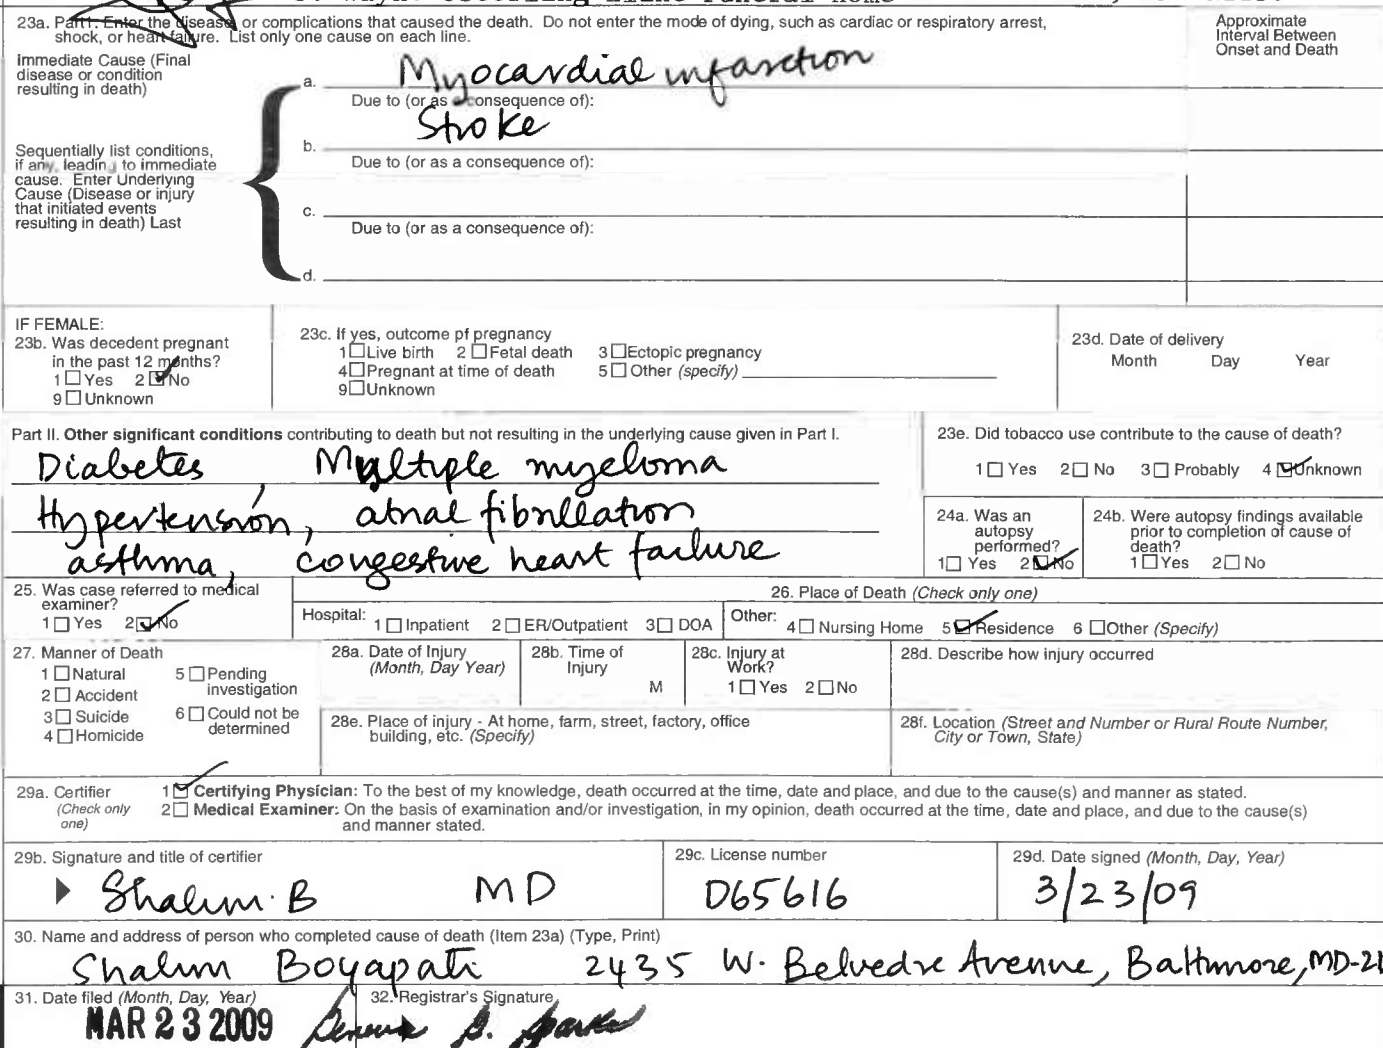 23a. Part I. Enter the disease, or complications that caused the death. Do not enter the mode of dying, such as cardiac or respiratory arrest,
shock, or heart failure. List only one cause on each line.
Approximate
Interval Between
Onset and Death
Immediate Cause (Final
disease or condition
resulting in death)
a. Myocardial infarction
Due to (or as a consequence of):
Stroke
b.
Due to (or as a consequence of):
Sequentially list conditions,
if any, leading to immediate
cause. Enter Underlying
Cause (Disease or injury
that initiated events
resulting in death) Last
c.
Due to (or as a consequence of):
d.
IF FEMALE:
23b. Was decedent pregnant
in the past 12 months?
1 ☐ Yes 2 ☑ No
9 ☐ Unknown
23c. If yes, outcome pf pregnancy
1 ☐ Live birth 2 ☐ Fetal death 3 ☐ Ectopic pregnancy
4 ☐ Pregnant at time of death 5 ☐ Other (specify)
9 ☐ Unknown
23d. Date of delivery
Month Day Year
Part II. Other significant conditions contributing to death but not resulting in the underlying cause given in Part I.
Diabetes, Multiple myeloma
Hypertension, atrial fibrillation
asthma, congestive heart failure
23e. Did tobacco use contribute to the cause of death?
1 ☐ Yes 2 ☐ No 3 ☐ Probably 4 ☑ Unknown
24a. Was an
autopsy
performed?
1 ☐ Yes 2 ☑ No
24b. Were autopsy findings available
prior to completion of cause of
death?
1 ☐ Yes 2 ☐ No
25. Was case referred to medical
examiner?
1 ☐ Yes 2 ☑ No
26. Place of Death (Check only one)
Hospital: 1 ☐ Inpatient 2 ☐ ER/Outpatient 3 ☐ DOA Other: 4 ☐ Nursing Home 5 ☑ Residence 6 ☐ Other (Specify)
27. Manner of Death
1 ☐ Natural 5 ☐ Pending
investigation
2 ☐ Accident
3 ☐ Suicide 6 ☐ Could not be
determined
4 ☐ Homicide
28a. Date of Injury
(Month, Day Year)
28b. Time of
Injury
M
28c. Injury at
Work?
1 ☐ Yes 2 ☐ No
28d. Describe how injury occurred
28e. Place of injury - At home, farm, street, factory, office
building, etc. (Specify)
28f. Location (Street and Number or Rural Route Number,
City or Town, State)
29a. Certifier
(Check only
one)
1 ☑ Certifying Physician: To the best of my knowledge, death occurred at the time, date and place, and due to the cause(s) and manner as stated.
2 ☐ Medical Examiner: On the basis of examination and/or investigation, in my opinion, death occurred at the time, date and place, and due to the cause(s)
and manner stated.
29b. Signature and title of certifier
Shalini. B MD
29c. License number
D65616
29d. Date signed (Month, Day, Year)
3/23/09
30. Name and address of person who completed cause of death (Item 23a) (Type, Print)
Shalini Boyapati 2435 W. Belvedre Avenue, Baltimore, MD-21
31. Date filed (Month, Day, Year)
MAR 23 2009
32. Registrar's Signature